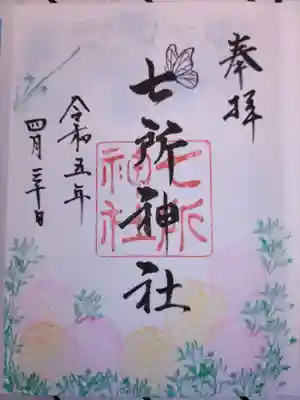 奉拝
七所神社
七所
神社
令和五年
四月三十日